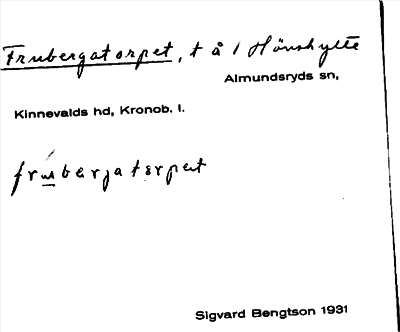 Frubergatorpet, t å / Hönshylte
Almundsryds sn,
Kinnevalds hd, Kronob. l.
Sigvard Bengtson 1931